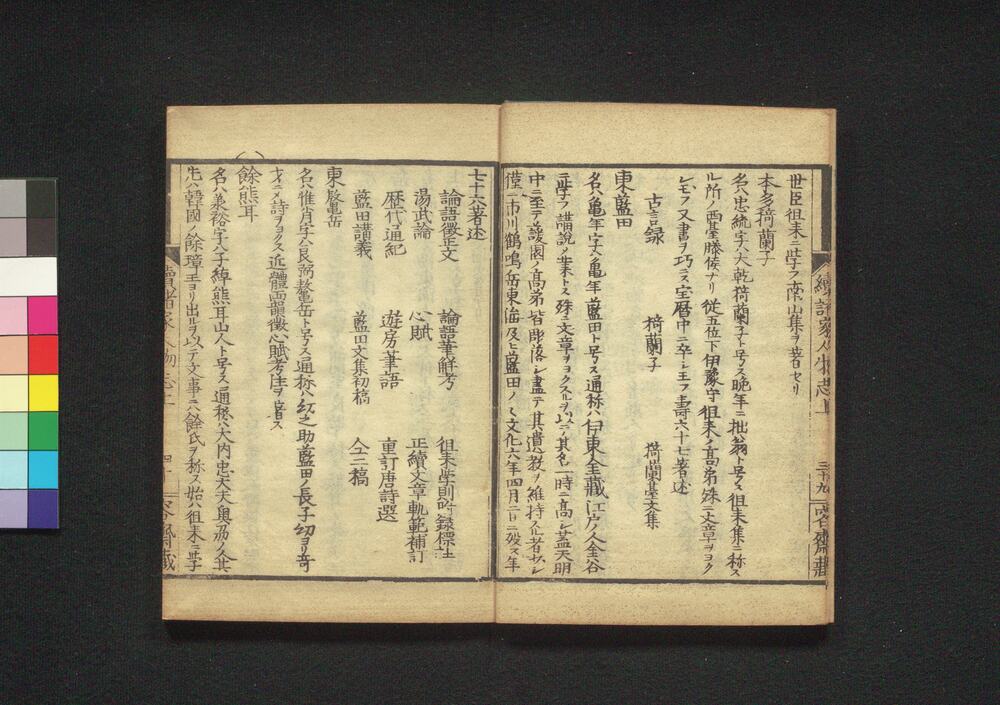 世臣徂来ニ学フ蘐山集ヲ著セリ
本多猗蘭子
名ハ忠統字ハ大乾猗蘭子ト号ス晩年ニ拙翁ト号ス徂来集ニ称ス
ル所ノ西臺滕侯ナリ従五位下伊豫守徂来ノ高弟殊ニ文章ヲヨク
シ玉フ又書ヲ巧ニス宝暦中ニ卒シ玉フ壽六十七著述
古言録 猗蘭子 猗蘭臺文集
東藍田
名ハ亀年字ハ亀年藍田ト号ス通称ハ伊東金蔵江戸ノ人金谷
ニ学フ講説ヲ業トス殊ニ文章ヲヨクスルヲ以テ其名一時ニ高シ蓋天明
中ニ至テ蘐園ノ高弟皆彫落シ盡テ其遺教ヲ維持スル者少シ
僅ニ市川鶴鳴岳東海及ヒ藍田ノミ文化六年四月二日ニ歿ス年
續諸家人物志上 三十九 容齋蔵
七十六著述
論語徴正文 論語筆解考 徂来学則附録標註
湯武論 心賦 正續文章軌範補訂
歴代通紀 遊房筆語 重訂唐詩選
藍田講義 藍田文集初稿 仝二稿
東嶅亀岳
名ハ惟肖字ハ良弼嶅岳ト号ス通称ハ紅之助藍田ノ長子幼ヨリ奇
才ニメ詩ヲヨクス近體雨韻徴心賦考注ヲ著ス
餘熊耳
名ハ義裕字ハ子綽熊耳山人ト号ス通称ハ大内忠太夫奥州ノ人其
先ハ韓國ノ餘璋王ヨリ出ルヲ以テ文事ニハ餘氏ヲ称ス始ハ徂来ニ学
續諸家人物志上 四十 容齋蔵